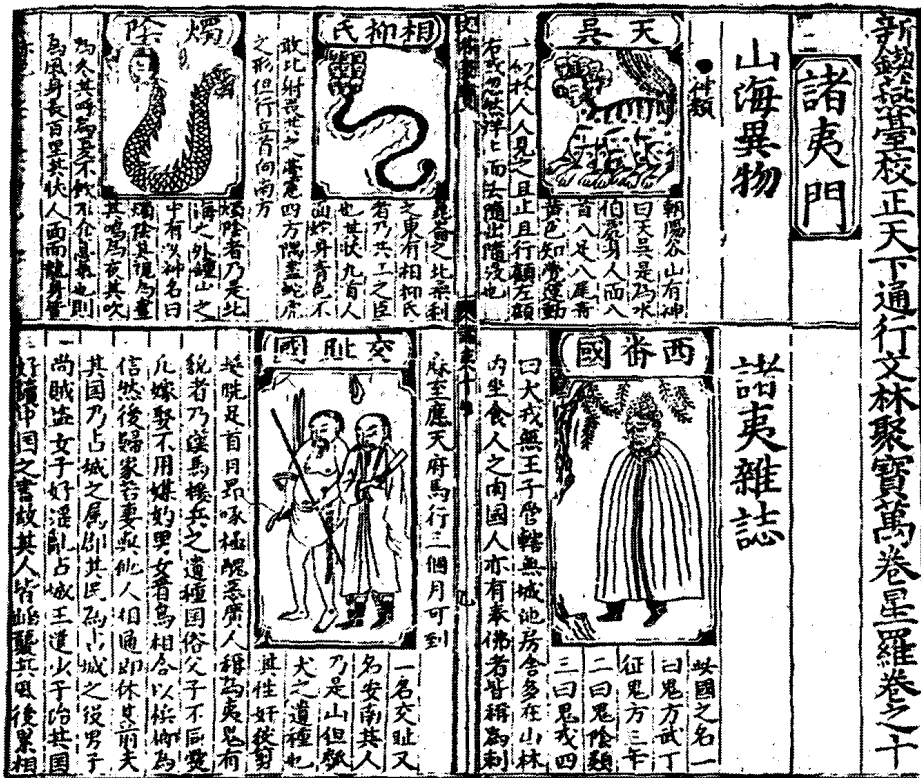 新鍥燕臺校正天下通行文林聚寶萬卷星羅卷之十
諸夷門
山海異物
種類
天吳
朝陽谷山有神
曰天吳是為水
伯虎身人面八
首八足八尾青
黃色知常運動
一如於人人見之且止且行顧左顧
右或忽然洋上而去隨出隨沒也
相柳氏
崑崙之北柔利
之東有相柳氏
者乃共工之臣
也其狀九首人
面蛇身青色不
敢北射畏共工之臺臺四方隅畫蛇虎
之形但行立首向南方
燭陰
燭陰者乃是北
海之外鍾山之
中有山神名曰
燭陰其視為晝
其瞑為夜其吹
為冬其呼為夏不飲不食息氣也則
為風身長百里其狀人面而龍身
諸夷雜誌
西番國
此國之名一
曰鬼方武丁
征鬼方三年
二曰鬼陰類
三曰鬼戎四
曰犬戎無王子管轄無城池房舍多在山林
內坐食人之肉國人亦有奉佛者皆稱為剌
麻至應天府馬行三個月可到
交趾國
一名交趾又
名安南其人
乃是山
犬之遺種也
其性奸狡剪
髮跣足
貌者乃馬援兵之遺種国俗父子不同
凡嫁娶不用媒妁男女
信然後歸家若妻與他人相通即休其前夫
其国乃占城之属
尚賊盗女子好淫亂占城王遣少子治其国
好讀中国之書故其人皆